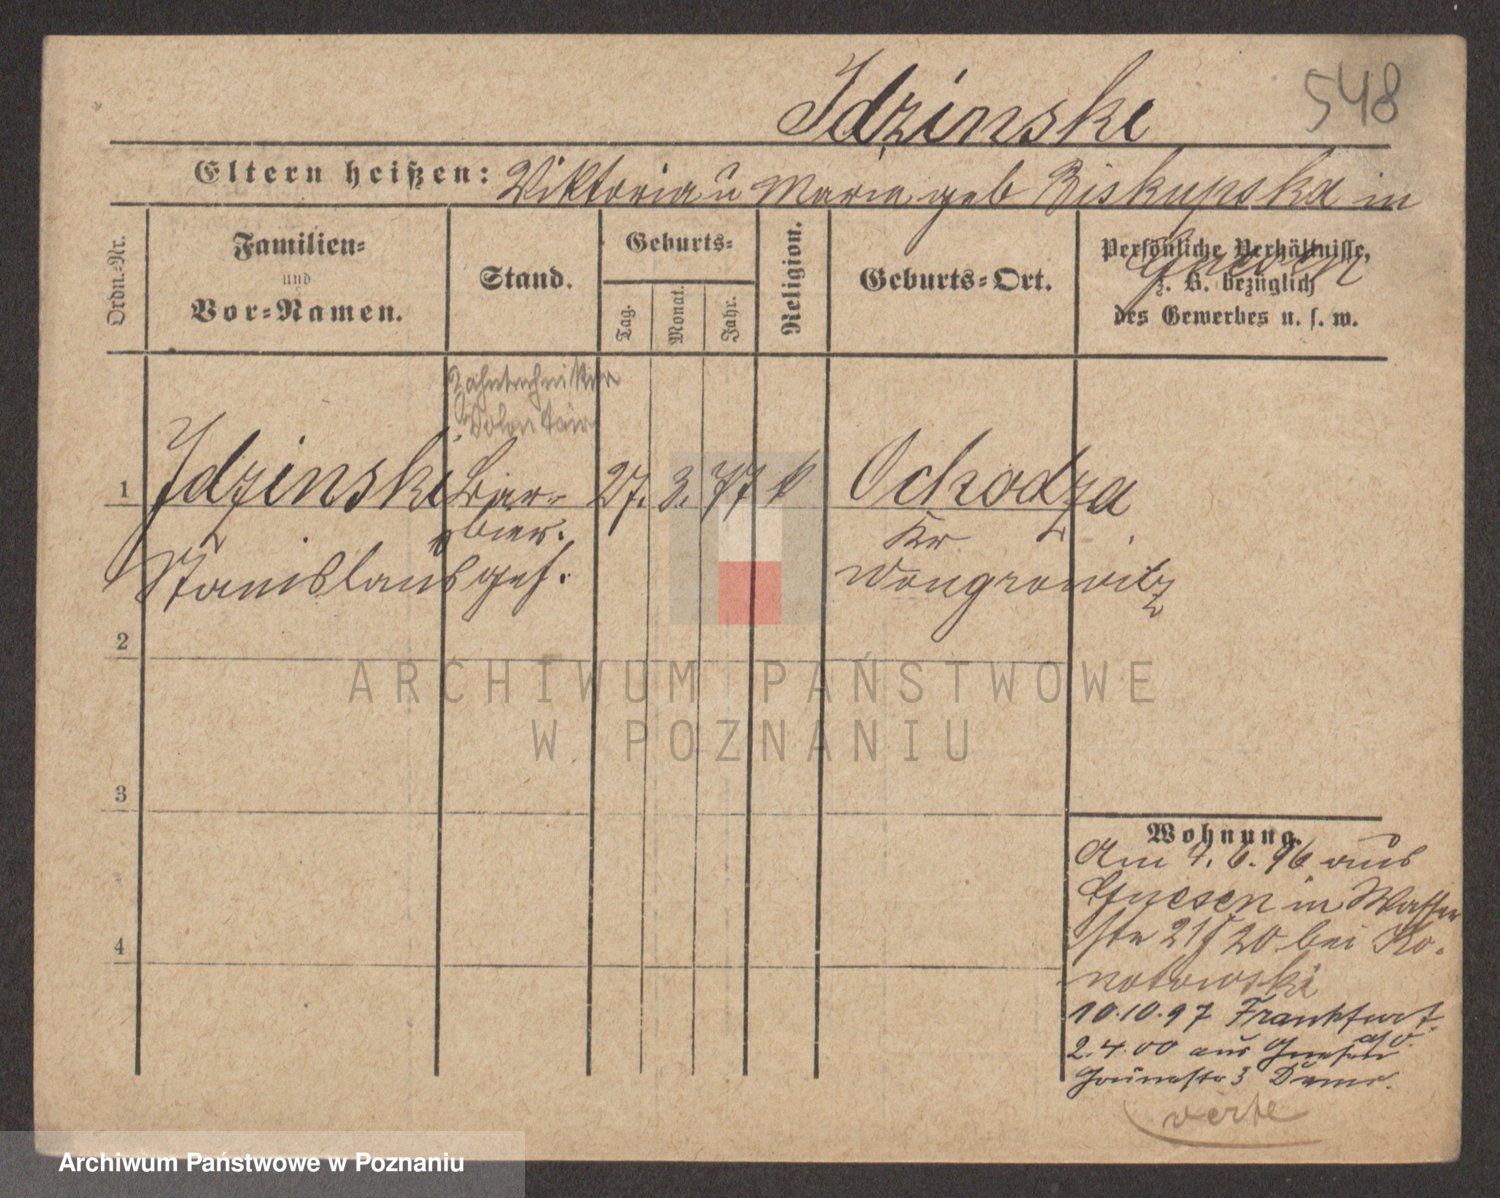 548
Idzinski
Eltern heißen: Viktoria u Maria geb Biskupska in
Gnesen
Ordn.-Nr.
Familien-
und
Vor-Namen.
Stand.
Geburts-
Tag.
Monat.
Jahr.
Religion.
Geburts-Ort.
Persönliche Verhältnisse,
z. B. bezüglich
des Gewerbes u. s. w.
Zahntechniker
Volontair
1 Idzinski Bar- 27. 3. 77 k Ochodza
bier. Kr
Stanislaus geh. Wongrowitz
2
3
4
Wohnung.
Am 4. 6. 96 aus
Gnesen in Wasser
str 21 20 bei Ko-
notowski
10.10.97 Frankfurt
a/O.
2.4.00 aus Gnesen
3
verte
ARCHIWUM PAŃSTWOWE
W POZNANIU
Archiwum Państwowe w Poznaniu